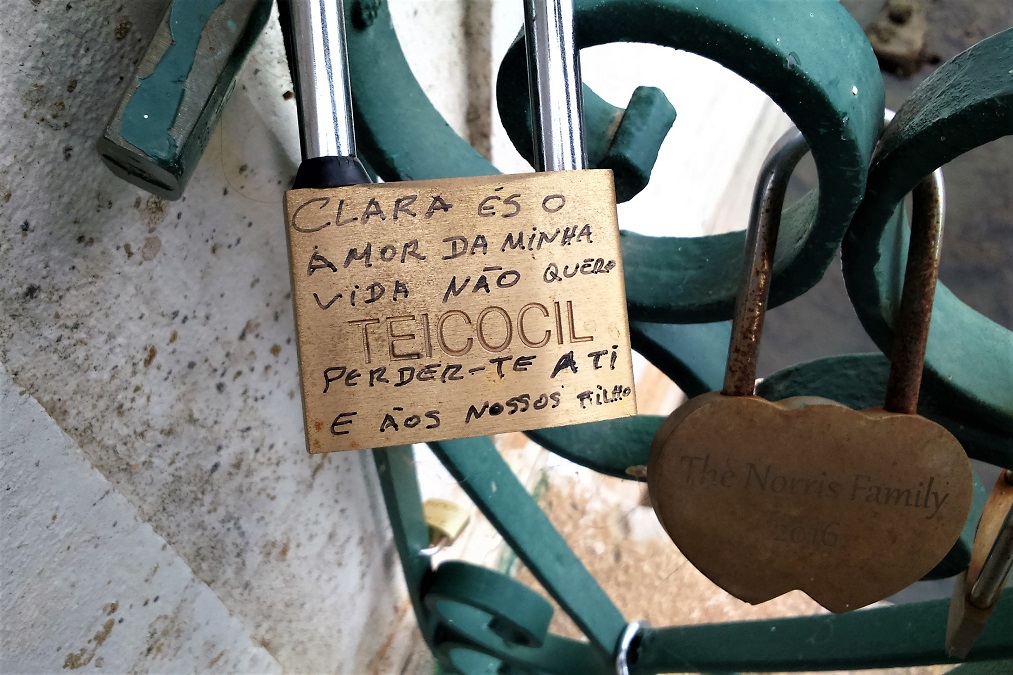 CLARA ÉS O
AMOR DA MINHA
VIDA NÃO QUERO
TEICOCIL
PERDER-TE A TI
E ÃOS NOSSOS FILHO
The Norris Family
2016